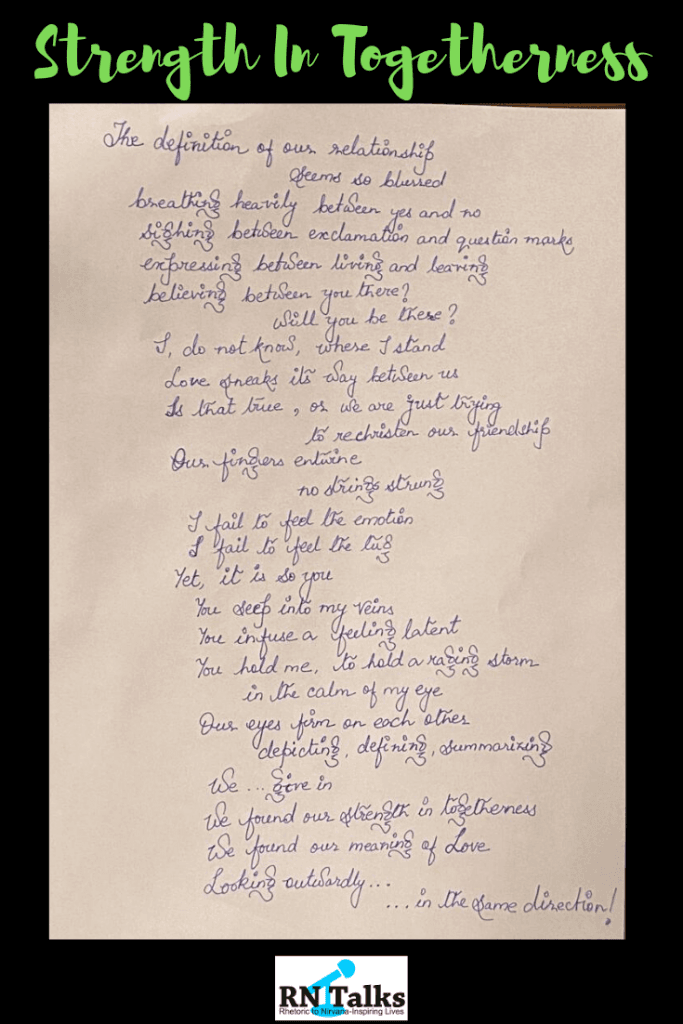 Strength In Togetherness
The definition of our relationship
seems so blurred
breathing heavily between yes and no
sighing between exclamation and question marks
expressing between living and leaving
believing between you there?
will you be there?
I, do not know, where I stand
Love sneaks its way between us
Is that true, or we are just trying
to rechristen our friendship
Our fingers entwine
no strings strung
I fail to feel the emotion
I fail to feel the tug
Yet, it is so you
You seep into my veins
You infuse a feeling latent
You hold me, to hold a raging storm
in the calm of my eye
Our eyes firm on each other
depicting, defining, summarizing
We ... give in
We found our strength in togetherness
We found our meaning of Love
Looking outwardly...
... in the same direction!
RN Talks
Rhetoric to Nirvana-Inspiring Lives